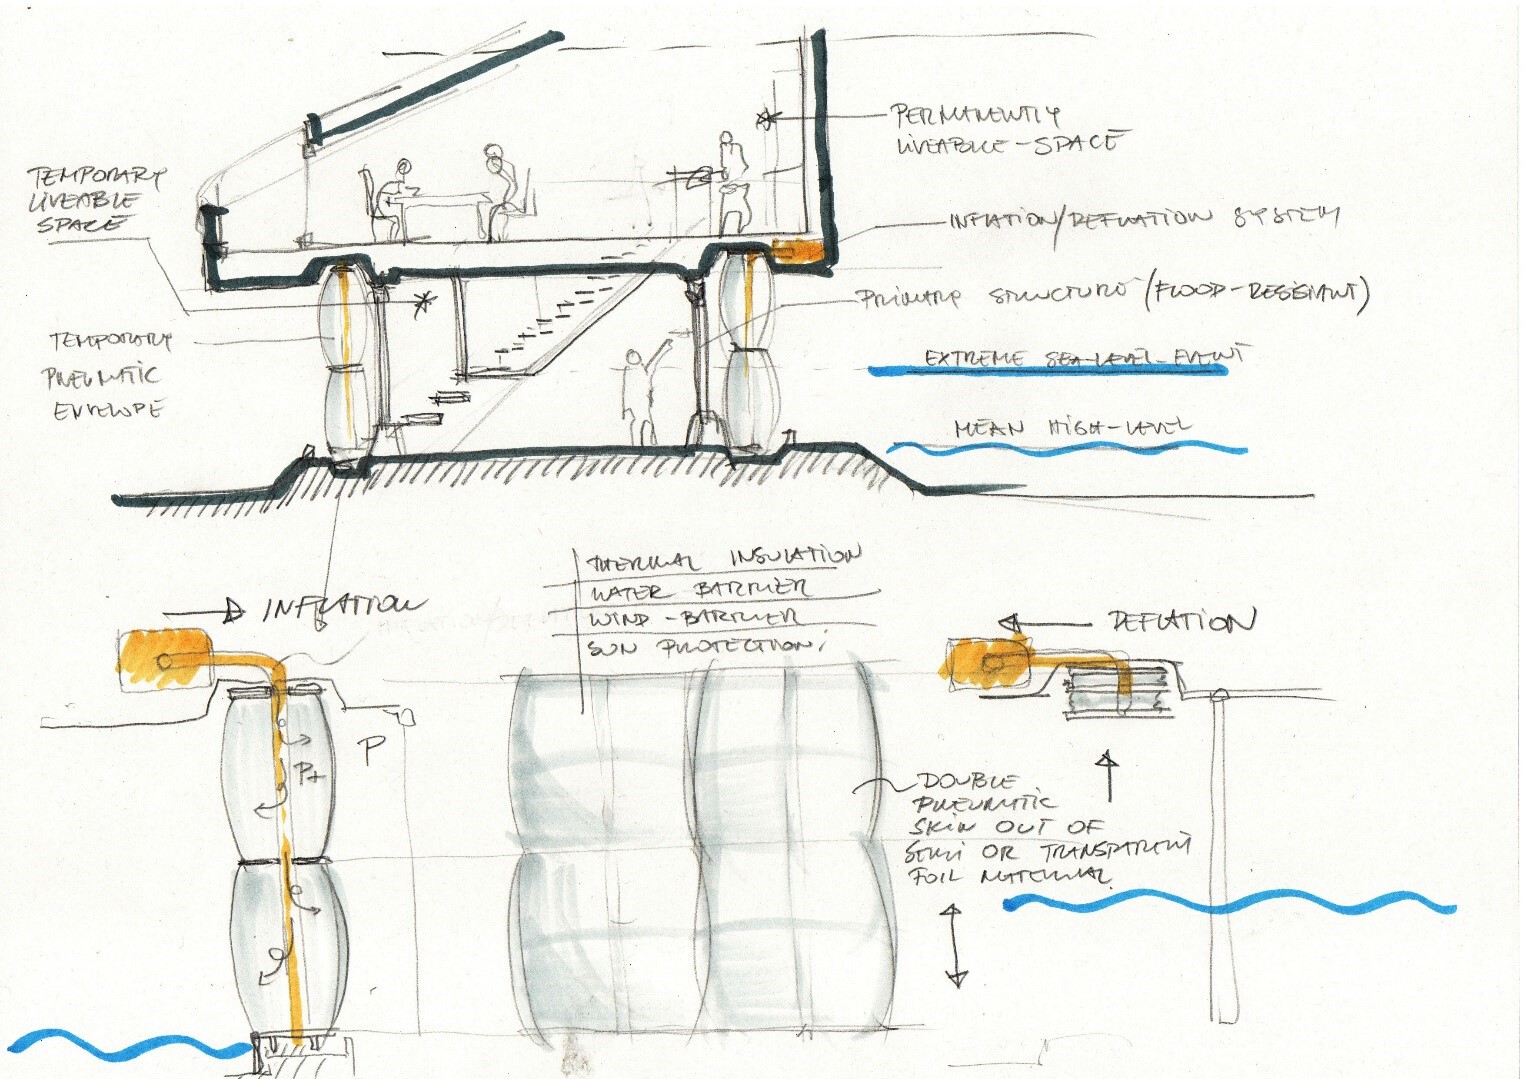 TEMPORARY
LIVEABLE
SPACE
PERMANENTLY
LIVEABLE-SPACE
INFLATION/DEFLATION SYSTEM
PRIMARY STRUCTURE (FLOOD-RESISTANT)
TEMPORARY
PNEUMATIC
ENVELOPE
EXTREME SEA-LEVEL-EVENT
MEAN HIGH-LEVEL
INFLATION
THERMAL INSULATION
WATER BARRIER
WIND-BARRIER
SUN PROTECTION
DEFLATION
P
P+
DOUBLE
PNEUMATIC
SKIN OUT OF
SEMI OR TRANSPARENT
FOIL MATERIAL